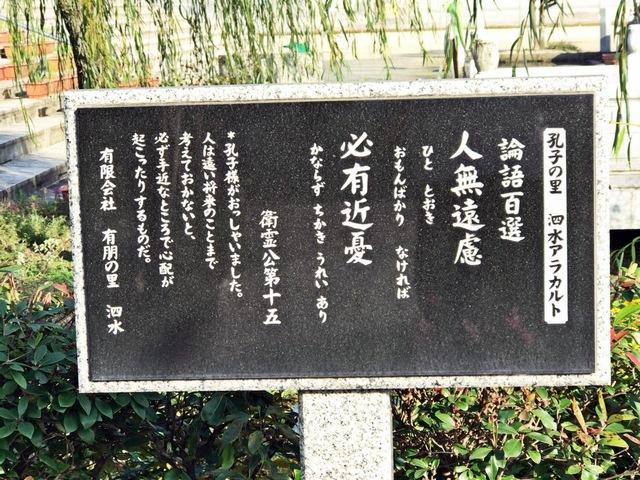 孔子の里 泗水アラカルト
論語百選
人無遠慮
ひと とおき
おもんばかり なければ
必有近憂
かならず ちかき うれい あり
衛霊公第十五
*孔子様がおっしゃいました。
人は遠い将来のことまで
考えておかないと、
必ず手近なところで心配が
起こったりするものだ。
有限会社 有朋の里 泗水